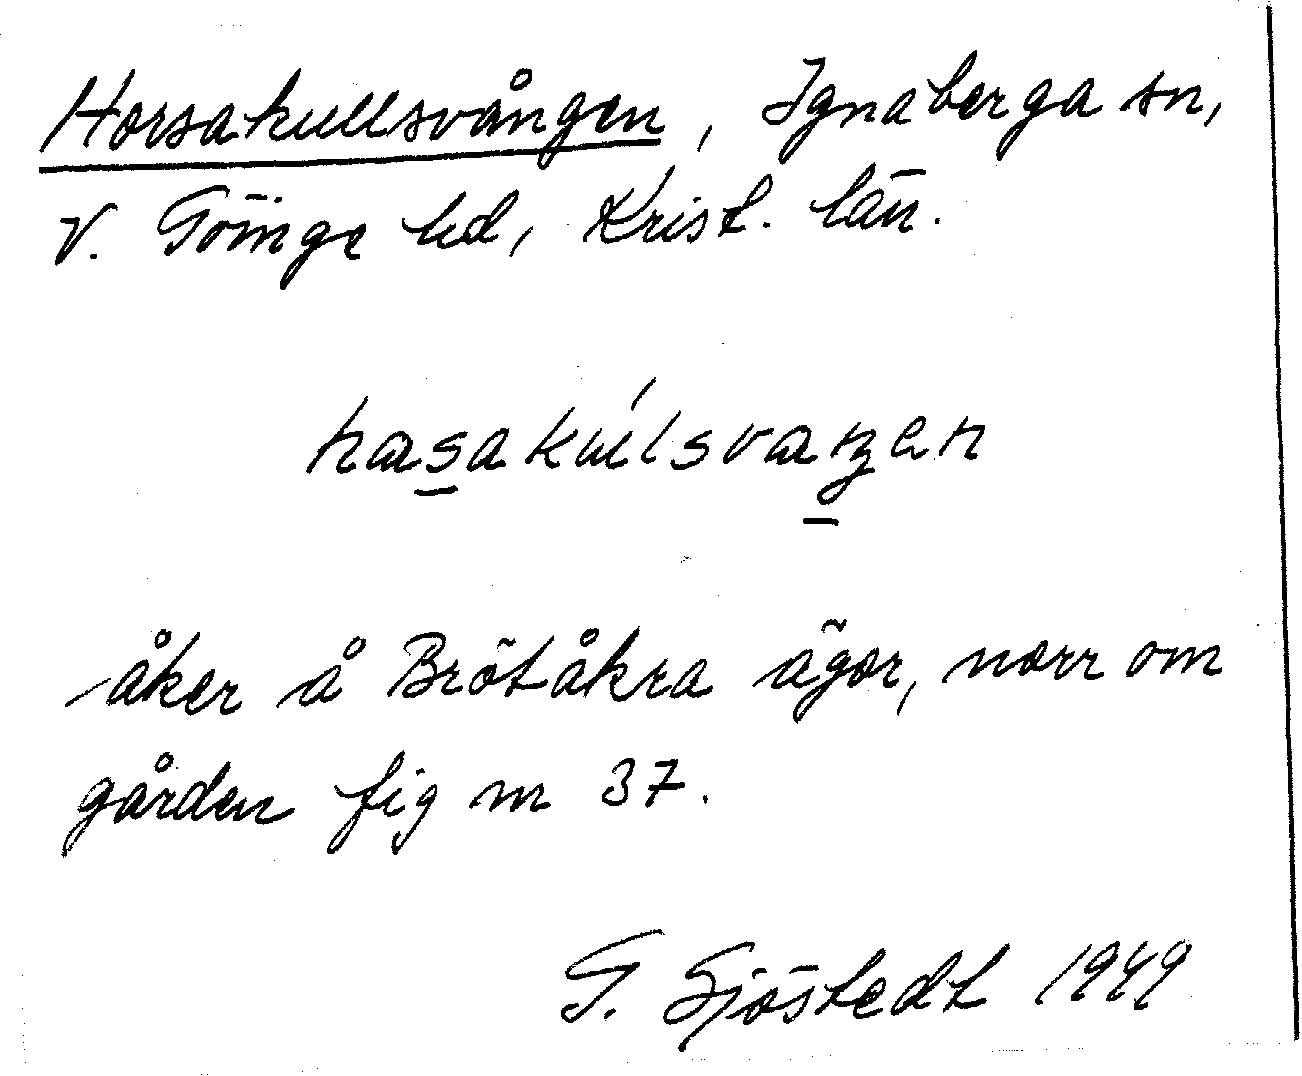 Horsakullsvången, Ignaberga sn,
V. Göinge hd, Krist. län.
hasakúlsvaŋen
åker å Brötåkra ägor, norr om
gården fig nr 37.
G. Sjöstedt 1949